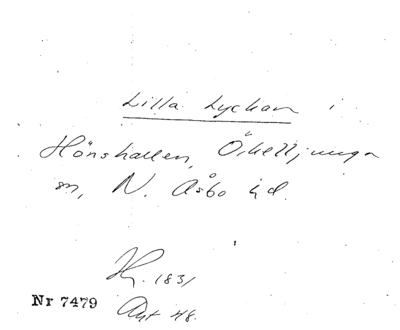 Lilla Lyckan i
Hönshallen, Örkelljunga
sn, N. Åsbo hd.
Hy. 1831
Nr 7479
Avt 48.